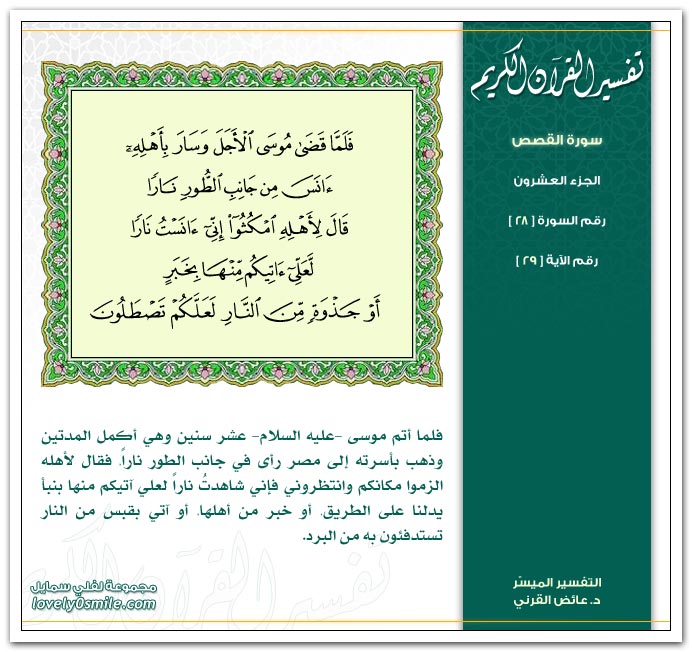 تفسير القرآن الكريم
سورة القصص
الجزء العشرون
رقم السورة [ ٢٨ ]
رقم الآية [ ٢٩ ]
فَلَمَّا قَضَىٰ مُوسَى ٱلْأَجَلَ وَسَارَ بِأَهْلِهِۦٓ
ءَانَسَ مِن جَانِبِ ٱلطُّورِ نَارًا
قَالَ لِأَهْلِهِ ٱمْكُثُوٓا۟ إِنِّىٓ ءَانَسْتُ نَارًا
لَّعَلِّىٓ ءَاتِيكُم مِّنْهَا بِخَبَرٍ
أَوْ جَذْوَةٍ مِّنَ ٱلنَّارِ لَعَلَّكُمْ تَصْطَلُونَ
فلما أتم موسى -عليه السلام- عشر سنين وهي أكمل المدتين
وذهب بأسرته إلى مصر رأى في جانب الطور ناراً، فقال لأهله
الزموا مكانكم وانتظروني فإني شاهدتُ ناراً لعلي آتيكم منها بنبأ
يدلنا على الطريق، أو خبر من أهلها، أو آتي بقبس من النار
تستدفئون به من البرد.
التفسير الميسّر
د. عائض القرني
مجموعة لفلي سمايل
lovely0smile.com
تفسير القرآن الكريم